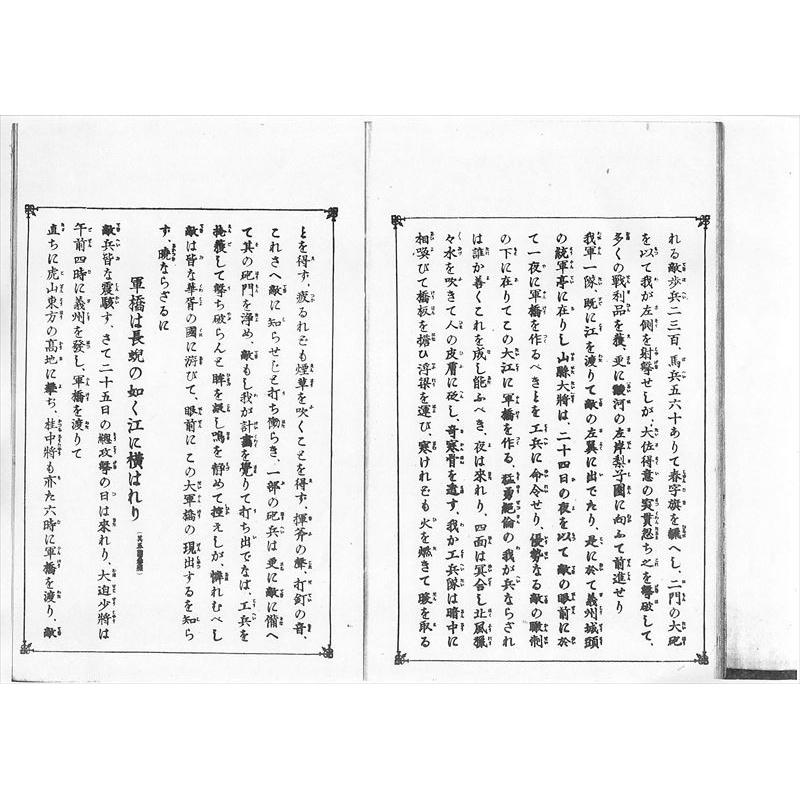 れる敵歩兵二三百、馬兵五六十ありて春字旗を飜へし、二門の大砲
を以て我が左側を射撃せしが、大佐得意の実貫忽ち之を撃破して、
多くの戦利品を獲、更に靉河の左岸梨子園に向ふて前進せり
我軍一隊、既に江を渡りて敵の左翼に出でたり、是に於て義州城頭
の統軍亭に在りし山縣大將は、二十四日の夜を以て敵の眼前に於
て一夜に軍橋を作るべきとを工兵に命令せり、優勢なる敵の瞰制
の下に在りてこの大江に軍橋を作る、猛勇絶倫の我が兵ならされ
は誰か善くこれを成し能ふべき、夜は來れり、四面は冥合し北風獵
々水を吹きて人の皮膚に砭し、奇寒骨を透す、我か工兵隊は暗中に
相喚びて橋板を擔ひ浮梁を運び、寒けれども火を燃きて暖を取る
とを得す、疲るれども煙草を吹くことを得す、揮斧の聲、打釘の音、
これさへ敵に知らせじと打ち働らき、一部の砲兵は更に敵に備へ
て其の砲門を浄め、敵もし我が計畫を覺りて打ち出でなば、工兵を
掩護して撃ち破らんと眸を凝し鳴を靜めて控えしが、憐れむべし
敵は皆な華胥の國に游びて、眼前にこの大軍橋の現出するを知ら
す、曉ならざるに
軍橋は長蛇の如く江に横はれり
敵兵皆な震駭す、さて二十五日の總攻撃の日は來れり、大迫少將は
午前四時に義州を發し、軍橋を渡りて
直ちに虎山東方の髙地に攀ぢ、桂中將も亦た六時に軍橋を渡り、敵